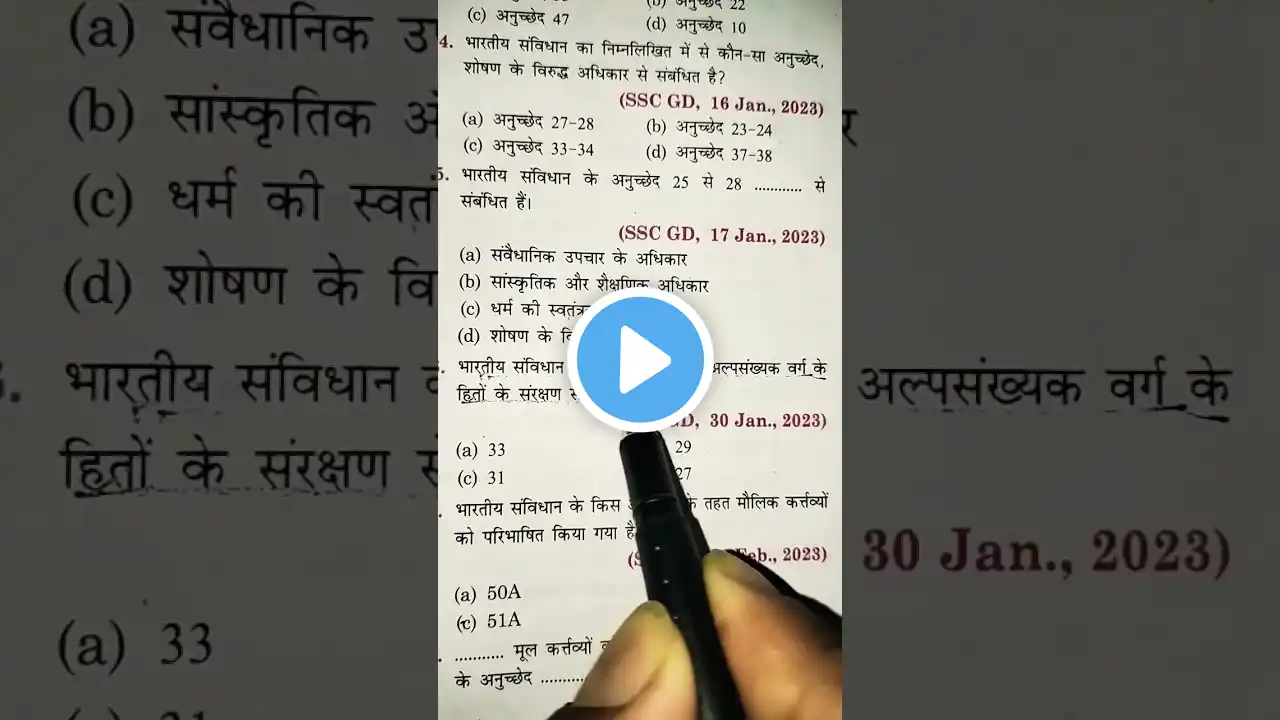 (c) अनुच्छेद 47 (d) अनुच्छेद 10
4. भारतीय संविधान का निम्नलिखित में से कौन-सा अनुच्छेद,
शोषण के विरुद्ध अधिकार से संबंधित है?
(SSC GD, 16 Jan., 2023)
(a) अनुच्छेद 27-28 (b) अनुच्छेद 23-24
(c) अनुच्छेद 33-34 (d) अनुच्छेद 37-38
5. भारतीय संविधान के अनुच्छेद 25 से 28 ............ से
संबंधित हैं।
(SSC GD, 17 Jan., 2023)
(a) संवैधानिक उपचार के अधिकार
(b) सांस्कृतिक और शैक्षणिक अधिकार
(c) धर्म की
(d) शोषण के
भारतीय संविधान अल्पसंख्यक वर्ग के
हितों के संरक्षण
GD, 30 Jan., 2023)
(a) 33 29
(c) 31 27
भारतीय संविधान के किस के तहत मौलिक कर्त्तव्यों
को परिभाषित किया गया
Feb., 2023)
(a) 50A
(c) 51A
........... मूल कर्त्तव्यों
के अनुच्छेद ..........
(a) संवैधानिक
(b) सांस्कृतिक
(c) धर्म की
(d) शोषण के
भारतीय संविधान अल्पसंख्यक वर्ग के
हितों के संरक्षण
30 Jan., 2023)
(a) 33